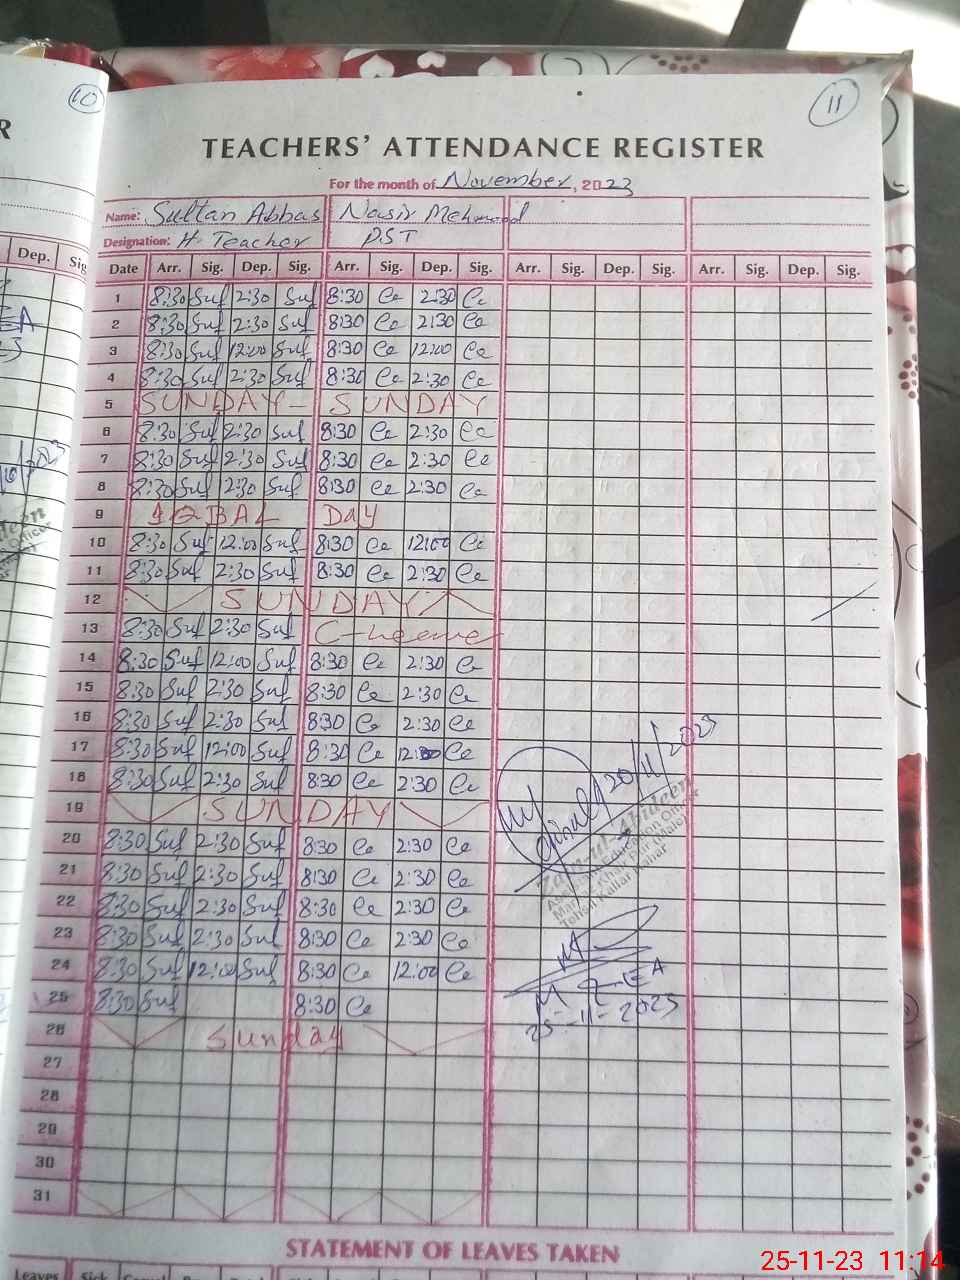 10
11
R
TEACHERS' ATTENDANCE REGISTER
For the month of November, 2023
Name: Sultan Abbas Nasir Mehmood
Designation: H. Teacher PST
Dep. Sig
Date Arr. Sig. Dep. Sig. Arr. Sig. Dep. Sig. Arr. Sig. Dep. Sig. Arr. Sig. Dep. Sig.
1 8:30 Suf 2:30 Suf 8:30 Ce 2:30 Ce
2 8:30 Suf 2:30 Suf 8:30 Ce 2:30 Ce
3 8:30 Suf 12:00 Suf 8:30 Ce 12:00 Ce
4 8:30 Suf 2:30 Suf 8:30 Ce 2:30 Ce
5 SUNDAY - SUNDAY
6 8:30 Suf 2:30 Suf 8:30 Ce 2:30 Ce
7 8:30 Suf 2:30 Suf 8:30 Ce 2:30 Ce
8 8:30 Suf 2:30 Suf 8:30 Ce 2:30 Ce
9 IQBAL Day
10 8:30 Suf 12:00 Suf 8:30 Ce 12:00 Ce
11 8:30 Suf 2:30 Suf 8:30 Ce 2:30 Ce
12 SUNDAY
13 8:30 Suf 2:30 Suf C-leave
14 8:30 Suf 12:00 Suf 8:30 Ce 2:30 Ce
15 8:30 Suf 2:30 Suf 8:30 Ce 2:30 Ce
16 8:30 Suf 2:30 Suf 8:30 Ce 2:30 Ce
17 8:30 Suf 12:00 Suf 8:30 Ce 12:00 Ce
18 8:30 Suf 2:30 Suf 8:30 Ce 2:30 Ce
19 SUNDAY
20 8:30 Suf 2:30 Suf 8:30 Ce 2:30 Ce
21 8:30 Suf 2:30 Suf 8:30 Ce 2:30 Ce
22 8:30 Suf 2:30 Suf 8:30 Ce 2:30 Ce
23 8:30 Suf 2:30 Suf 8:30 Ce 2:30 Ce
24 8:30 Suf 12:00 Suf 8:30 Ce 12:00 Ce
25 8:30 Suf 8:30 Ce
26 Sunday
27
28
29
30
31
20/11/2023
Zain-ul-Abideen
Assistant Education Officer
Markaz Khair Pur (Male)
Tehsil Kallar Kahar
MEA
25-11-2023
STATEMENT OF LEAVES TAKEN
Leaves Sick
25-11-23 11:14